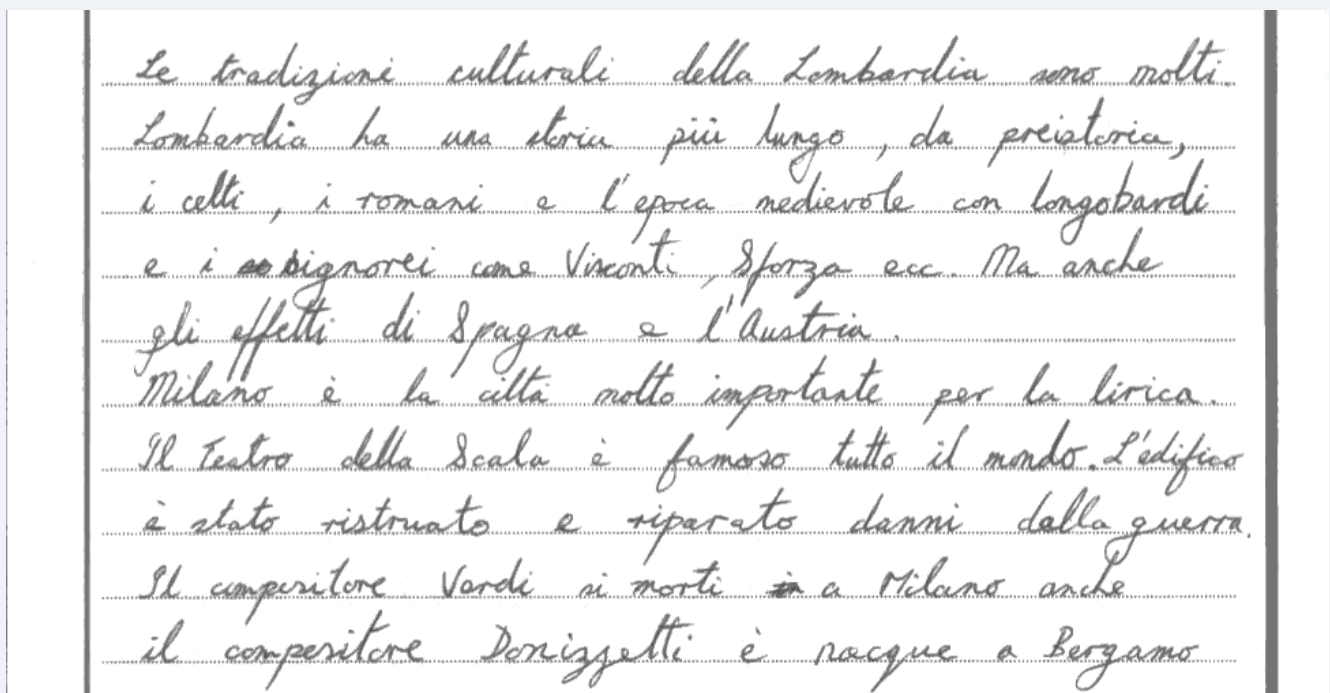 Le tradizioni culturali della Lombardia sono molti.
Lombardia ha una storia più lungo, da preistoria,
i celti, i romani e l'epoca medievole con longobardi
e i signorei come Visconti, Sforza ecc. Ma anche
gli effetti di Spagna e l'Austria.
Milano è la città molto importante per la lirica.
Il Teatro della Scala è famoso tutto il mondo. L'édifico
è stato ristruato e riparato danni dalla guerra.
Il compositore Verdi si morti a Milano anche
il compositore Donizzetti è nacque a Bergamo